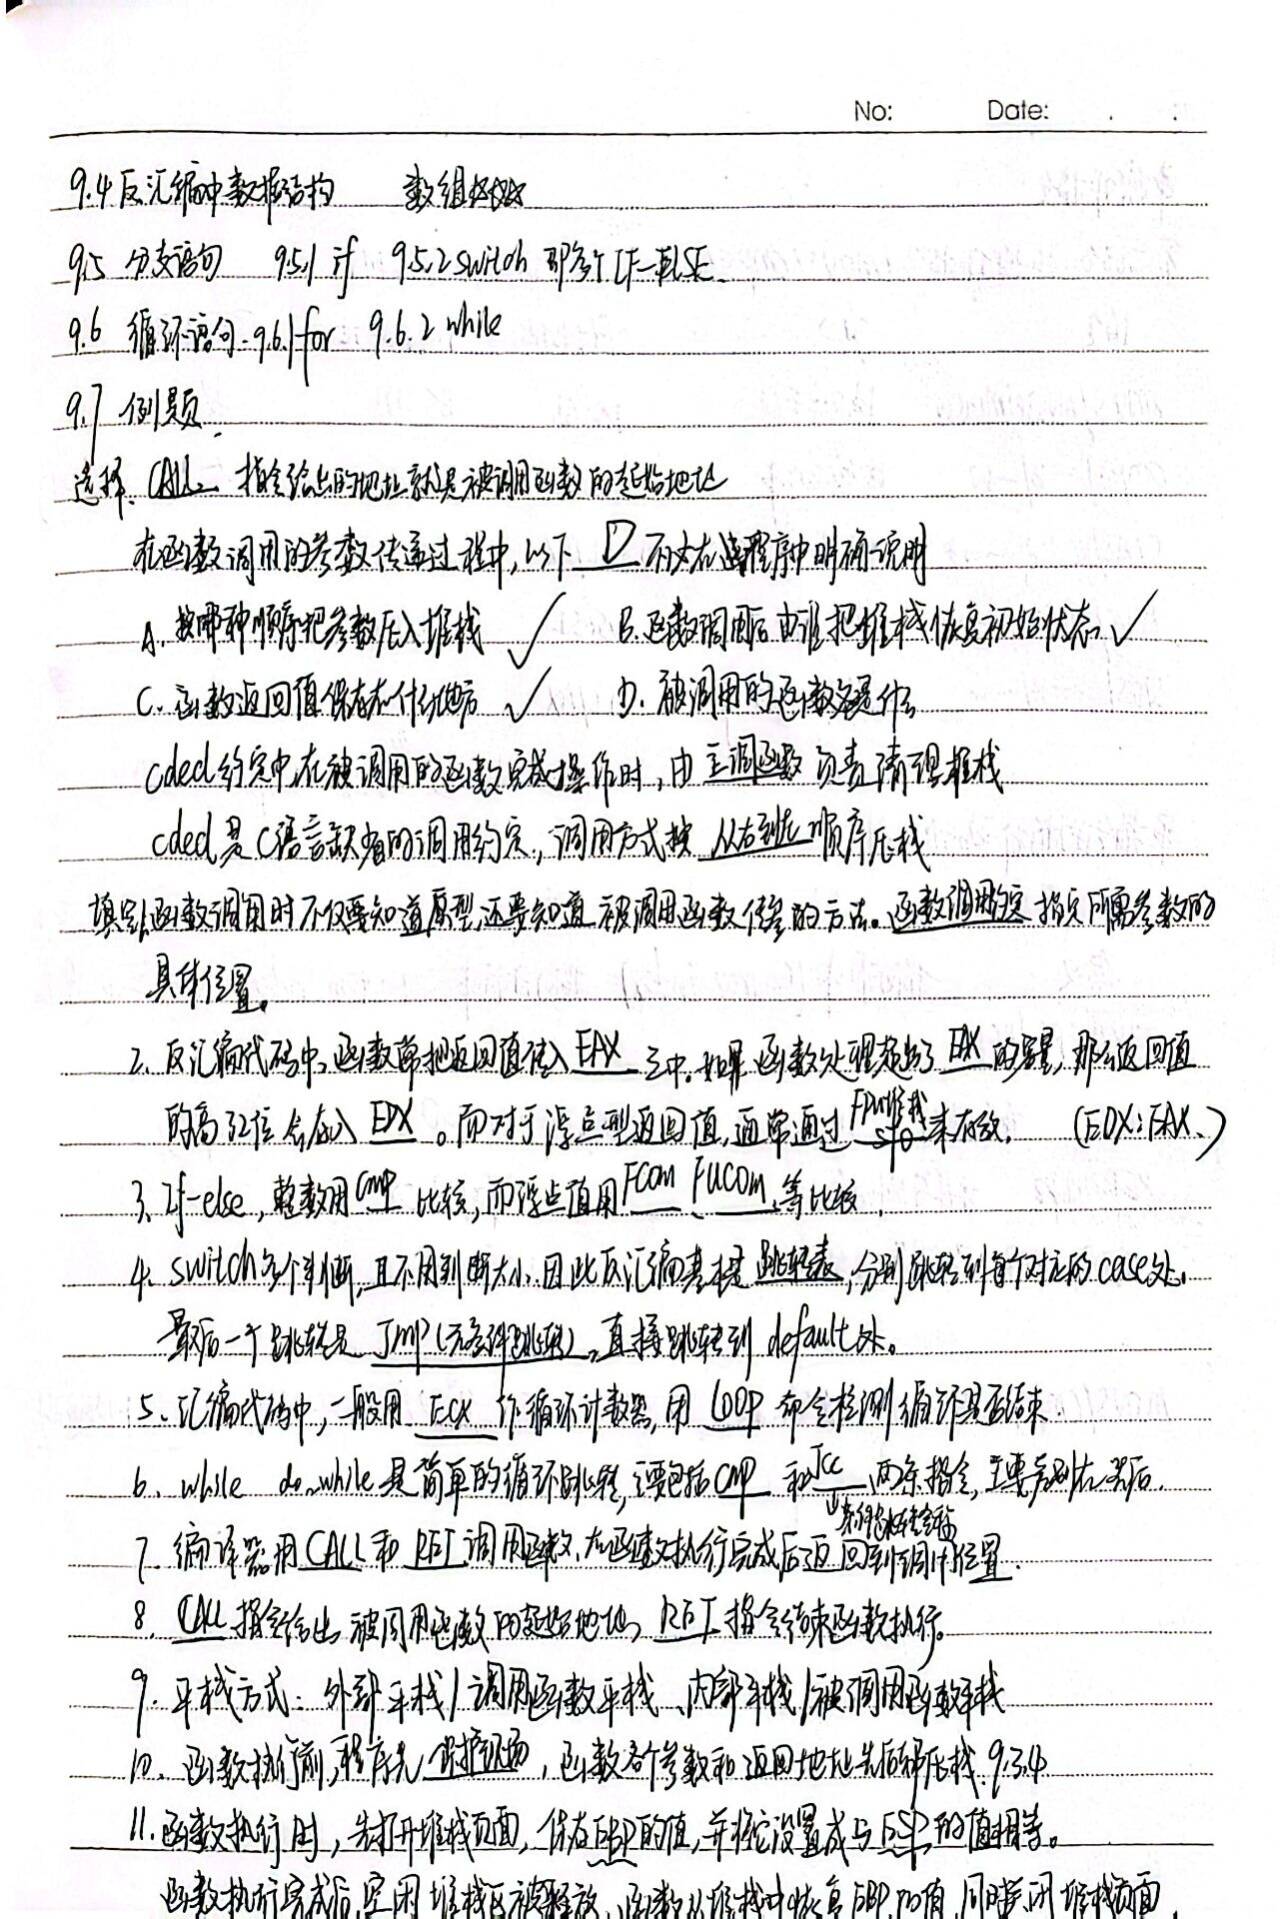 No: Date: . .
9.4 反汇编中数据结构 数组
9.5 分支语句 9.5.1 if 9.5.2 switch 即多个IF-ELSE.
9.6 循环语句. 9.6.1 for 9.6.2 while
9.7 例题.
选择. CALL 指令给出的地址就是被调用函数的起始地址
在函数调用的参数传递过程中,以下 D 不必在 程序中明确说明
A. 按哪种顺序把参数压入堆栈 ✓ B. 函数调用后由谁把堆栈恢复初始状态 ✓
C. 函数返回值保存在什么地方 ✓ D. 被调用的函数名是什么
cdecl约定中,在被调用的函数完成操作时,由主调函数负责清理堆栈
cdecl是C语言缺省的调用约定,调用方式按 从右到左 顺序压栈
填空1.函数调用时不仅要知道原型,还要知道被调用函数传参的方法。函数调用约定指定所需参数的
具体位置。
2. 反汇编代码中,函数常把返回值传入 EAX 之中.如果函数处理超出了 EAX 的容量,那么返回值
的高32位会存入 EDX 。而对于浮点型返回值,通常通过 FPU堆栈 ST0 来存放. (EDX:EAX.)
3. If-else, 整数用 cmp 比较,而浮点值用 FCOM、FUCOM 等比较.
4. switch多个判断,且不用判断大小.因此反汇编基本是 跳转表,分别跳转到每个对应的case处.
最后一个跳转是 JMP(无条件跳转),直接跳转到 default处.
5. 汇编代码中,一般用 ECX 作循环计数器,用 LOOP 命令检测循环是否结束.
6. while do-while是简单的循环跳转,主要包括 CMP 和 Jcc 两条指令,主要差别在先后.
条件跳转指令
7. 编译器用 CALL 和 RET 调用函数,在函数执行完成后返回到调用位置.
8. CALL 指令给出被调用函数的起始地址, RET 指令结束函数执行.
9. 平栈方式: 外部平栈/调用函数平栈、内部平栈/被调用函数平栈
10. 函数执行前,程序先 保护现场,函数各个参数和返回地址先后 压栈. 9.3.4
11. 函数执行时,先打开堆栈页面,保存EBP的值,并将它设置成与ESP的值相等。
函数执行完成后,空闲堆栈区被释放,函数从堆栈中恢复EBP的值,同时关闭堆栈页面.